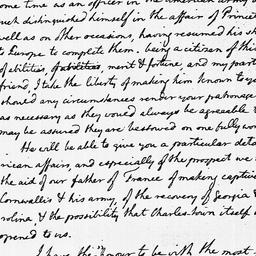 some time as an officer in the American army &
much distinguished himself in the affair of Prince
well as on other occasions, having resumed his st
to Europe to complete them. being a citizen of this
of abilities, merit & fortune, and my part
friend, I take the liberty of making him known to yo
should any circumstances render your patronage
as necessary as they would always be agreeable to
may be assured they are bestowed on one fully wor
He will be able to give you a particular deta
rican affairs, and especially of the prospect we
the aid of our father of France of making captive
Cornwallis & his army, of the recovery of Georgia &
rolina & the possibility that Charles-town itself
opened to us.
I have the honour to be with the most